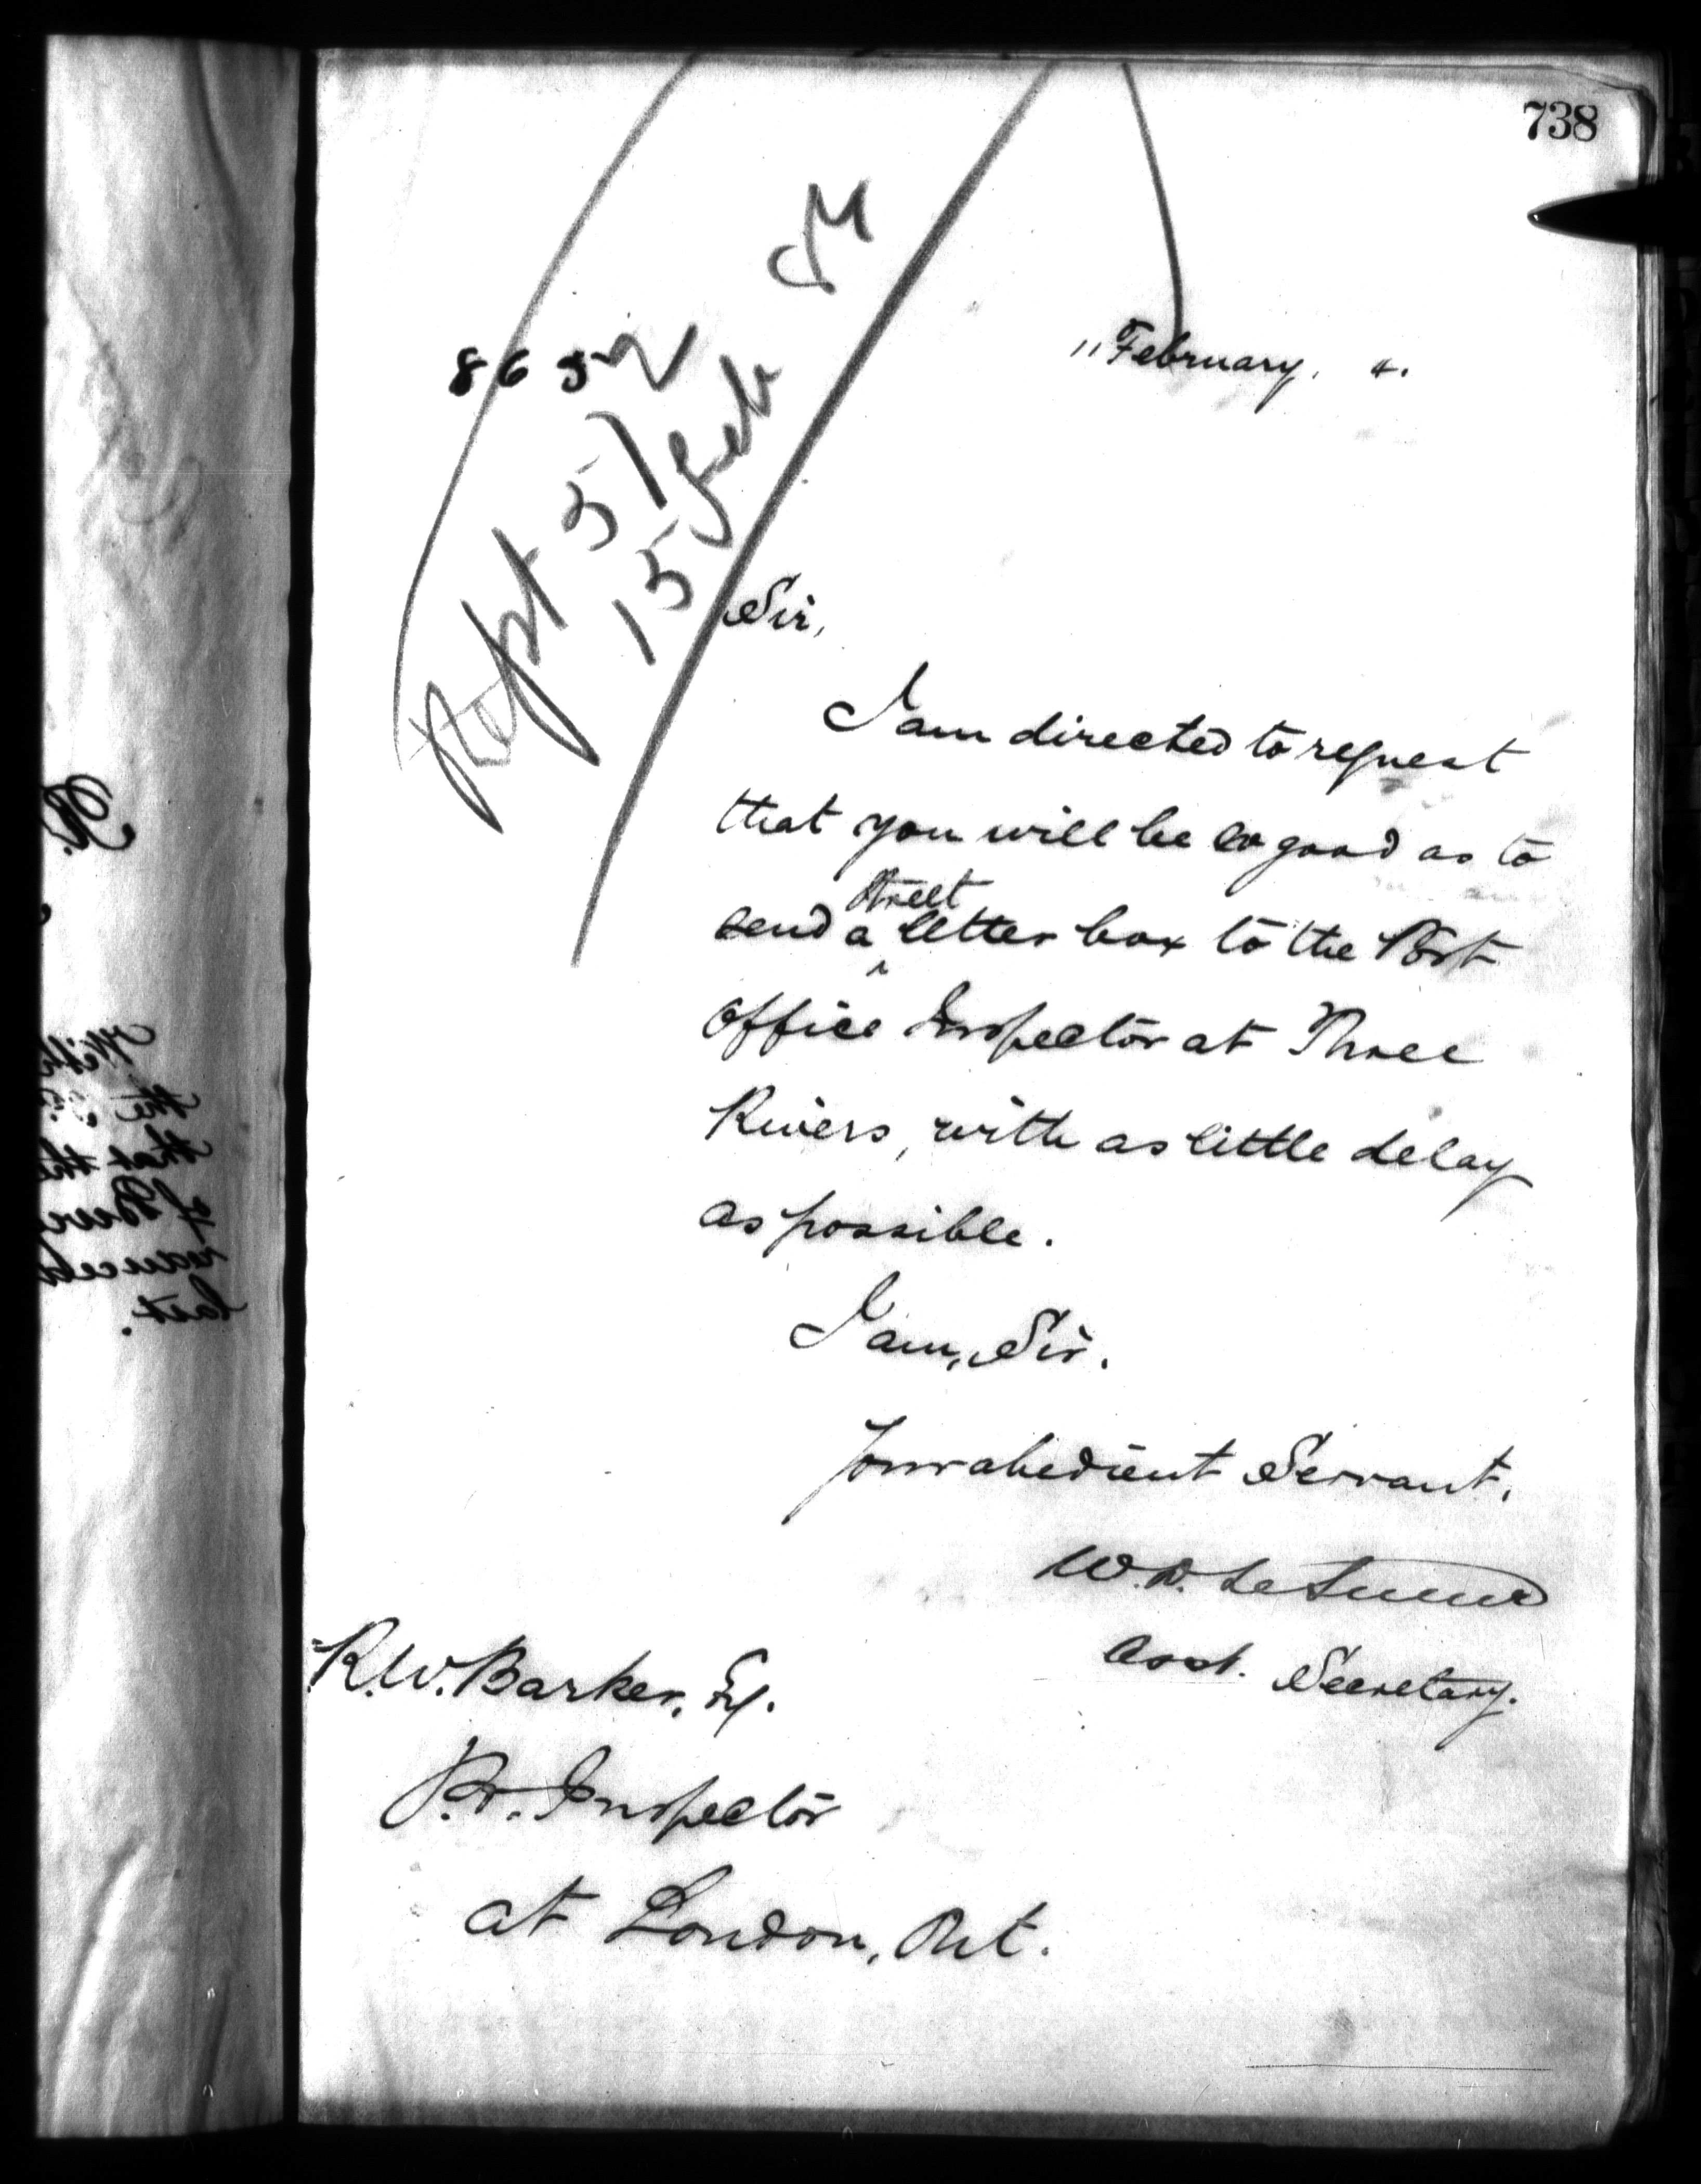 738
865
11 February, 4.
Rept 5/2
15 Feb
Sir,
I am directed to request
that you will be so good as to
street
send a letter box to the Post
Office Inspector at Three
Rivers, with as little delay
as possible.
I am, Sir.
Your obedient Servant,
W.D. LeSueur
Asst. Secretary.
R.W. Barker, Esq.
P.O. Inspector
at London, Ont.
With
the
that the
of
reduced
last.